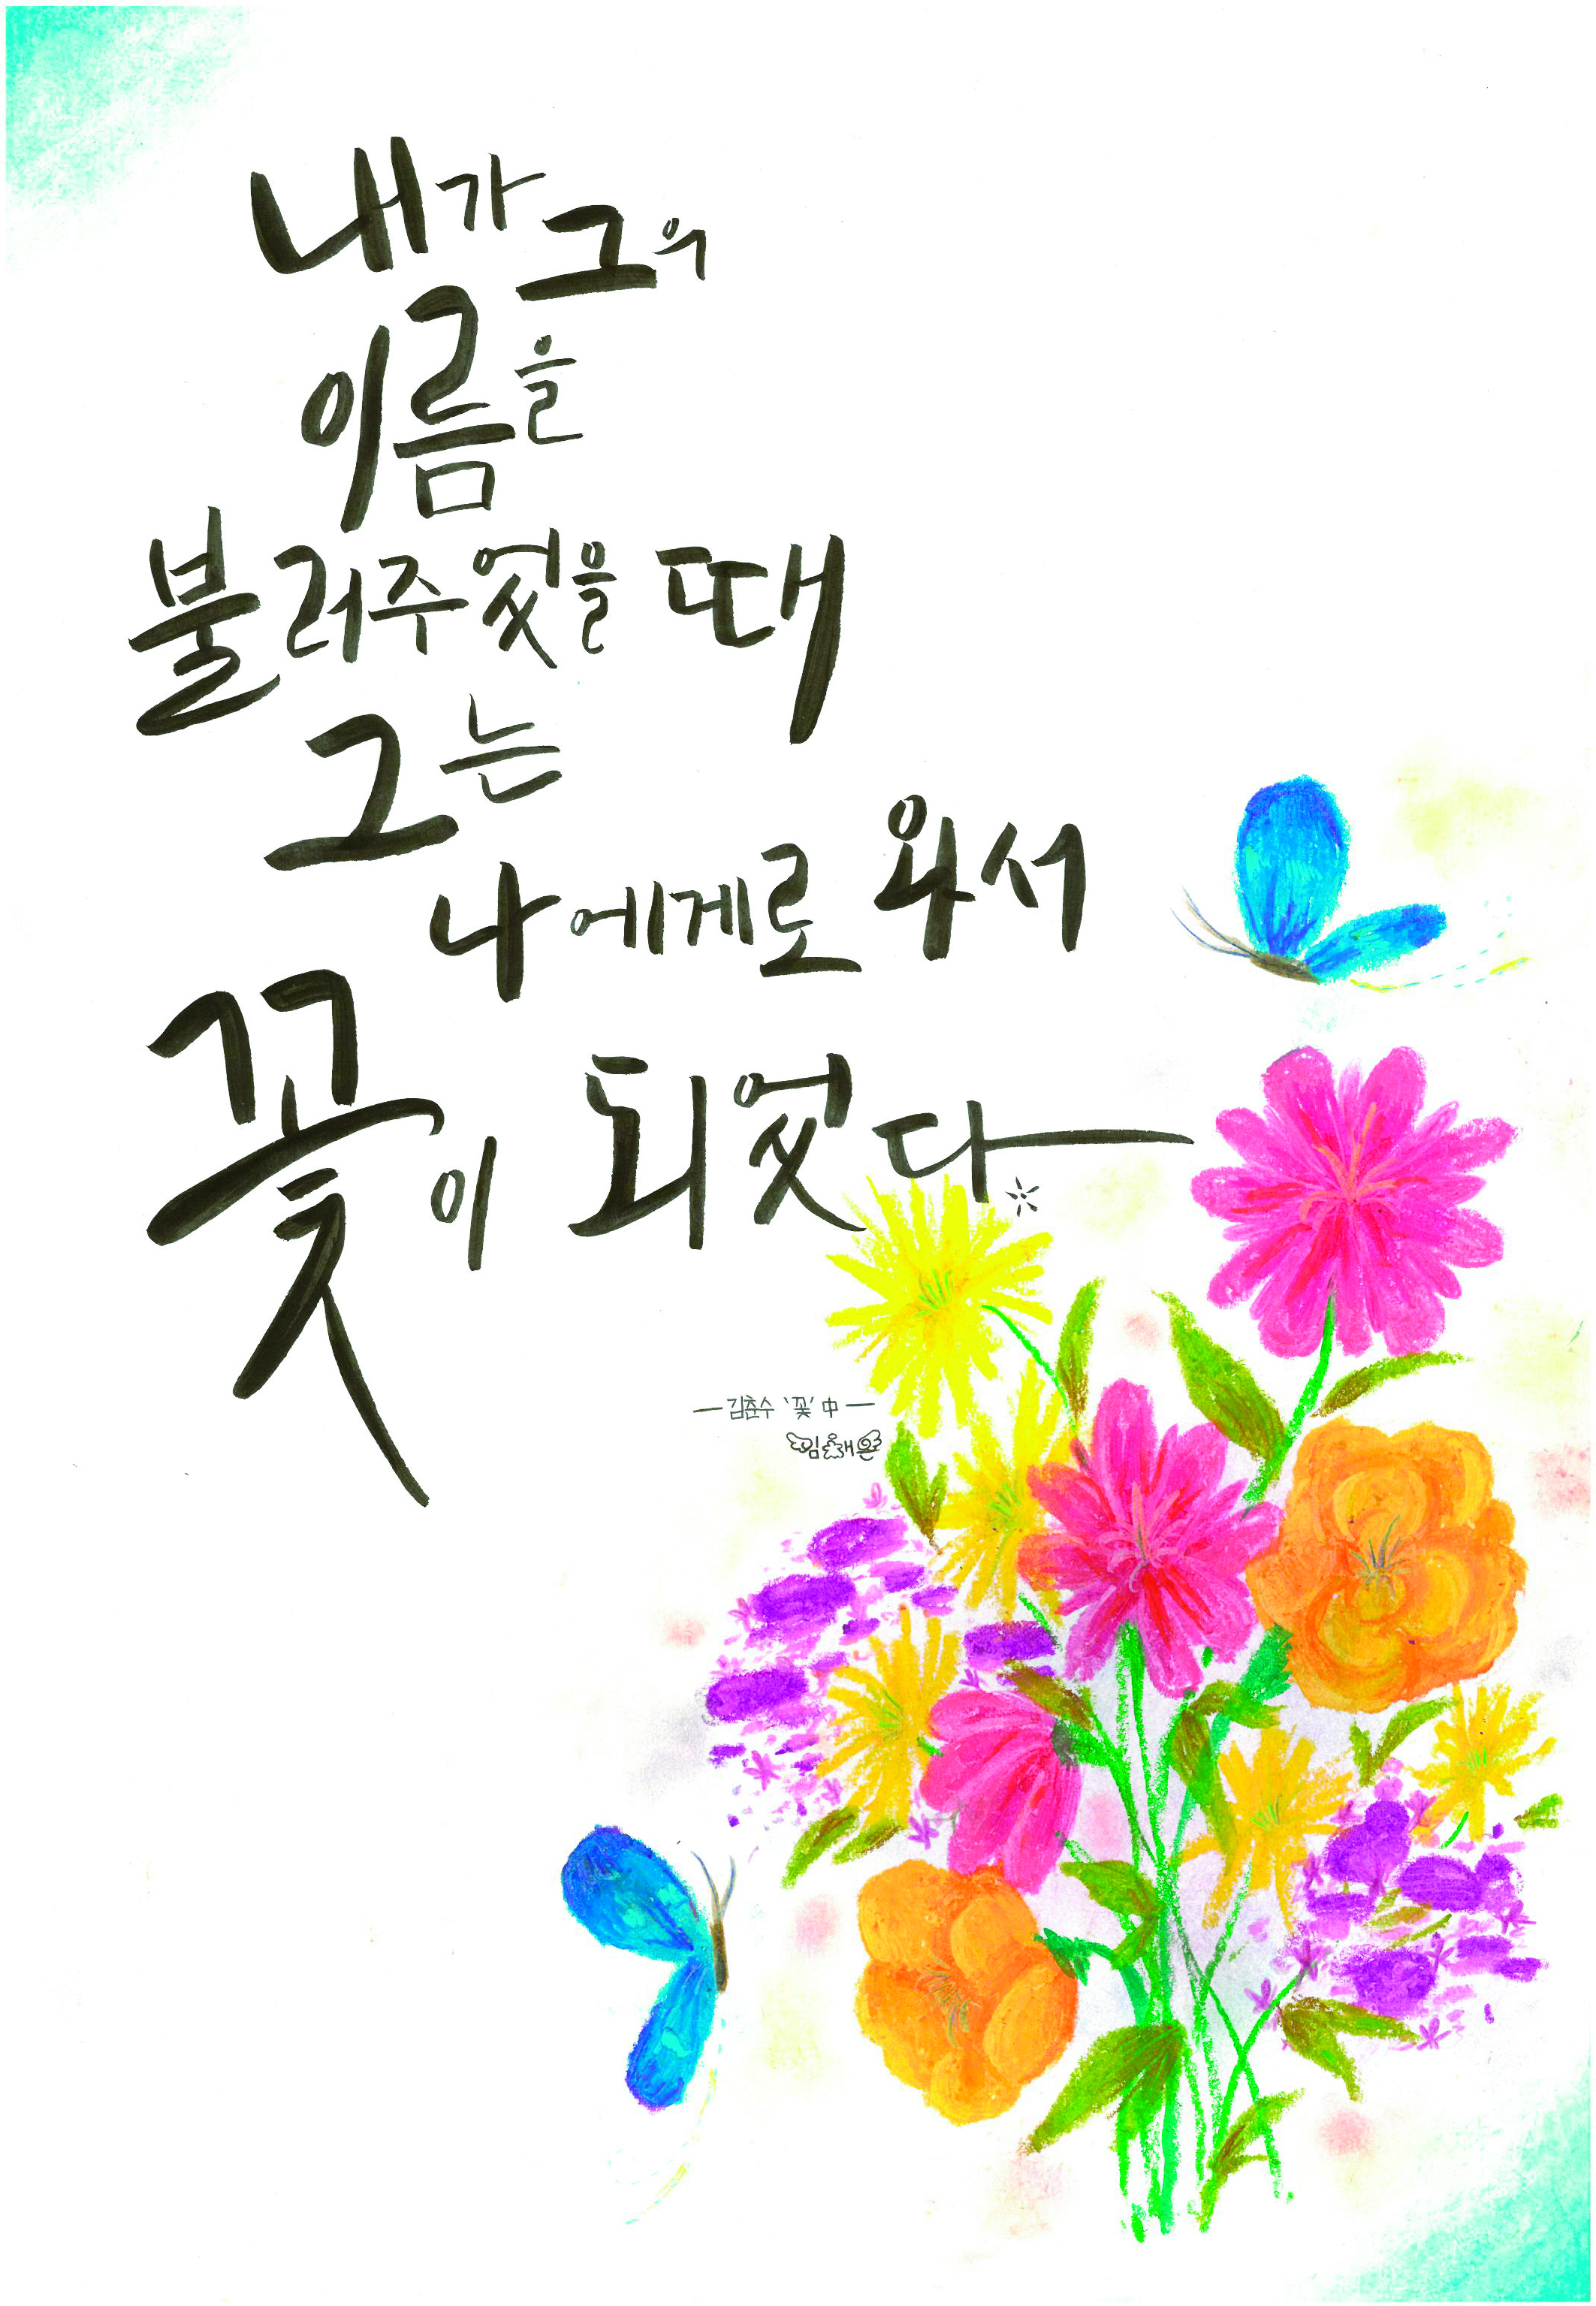 내가 그의
이름을
불러주었을 때
그는
나에게로 와서
꽃이 되었다
－김춘수 '꽃' 中－